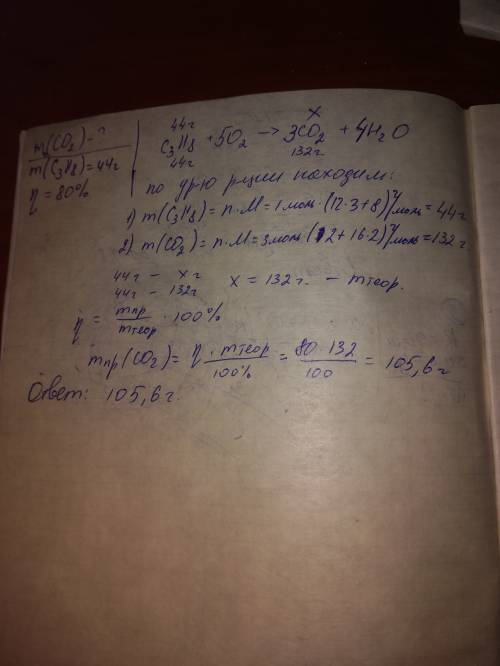 m(CO₂) - ?
m(C₃H₈) = 44г
η = 80%
44г x
C₃H₈ + 5O₂ → 3CO₂ + 4H₂O
44г 132г
по ур-ю р-ции находим:
1) m(C₃H₈) = n · M = 1 моль · (12 · 3 + 8) г/моль = 44г
2) m(CO₂) = n · M = 3 моль · (12 + 16 · 2) г/моль = 132г
44г - x г
44г - 132г x = 132г. - mтеор.
η = mпр/mтеор · 100%
mпр(CO₂) = η · mтеор/100% = 80 · 132/100 = 105,6г
Ответ: 105,6г.